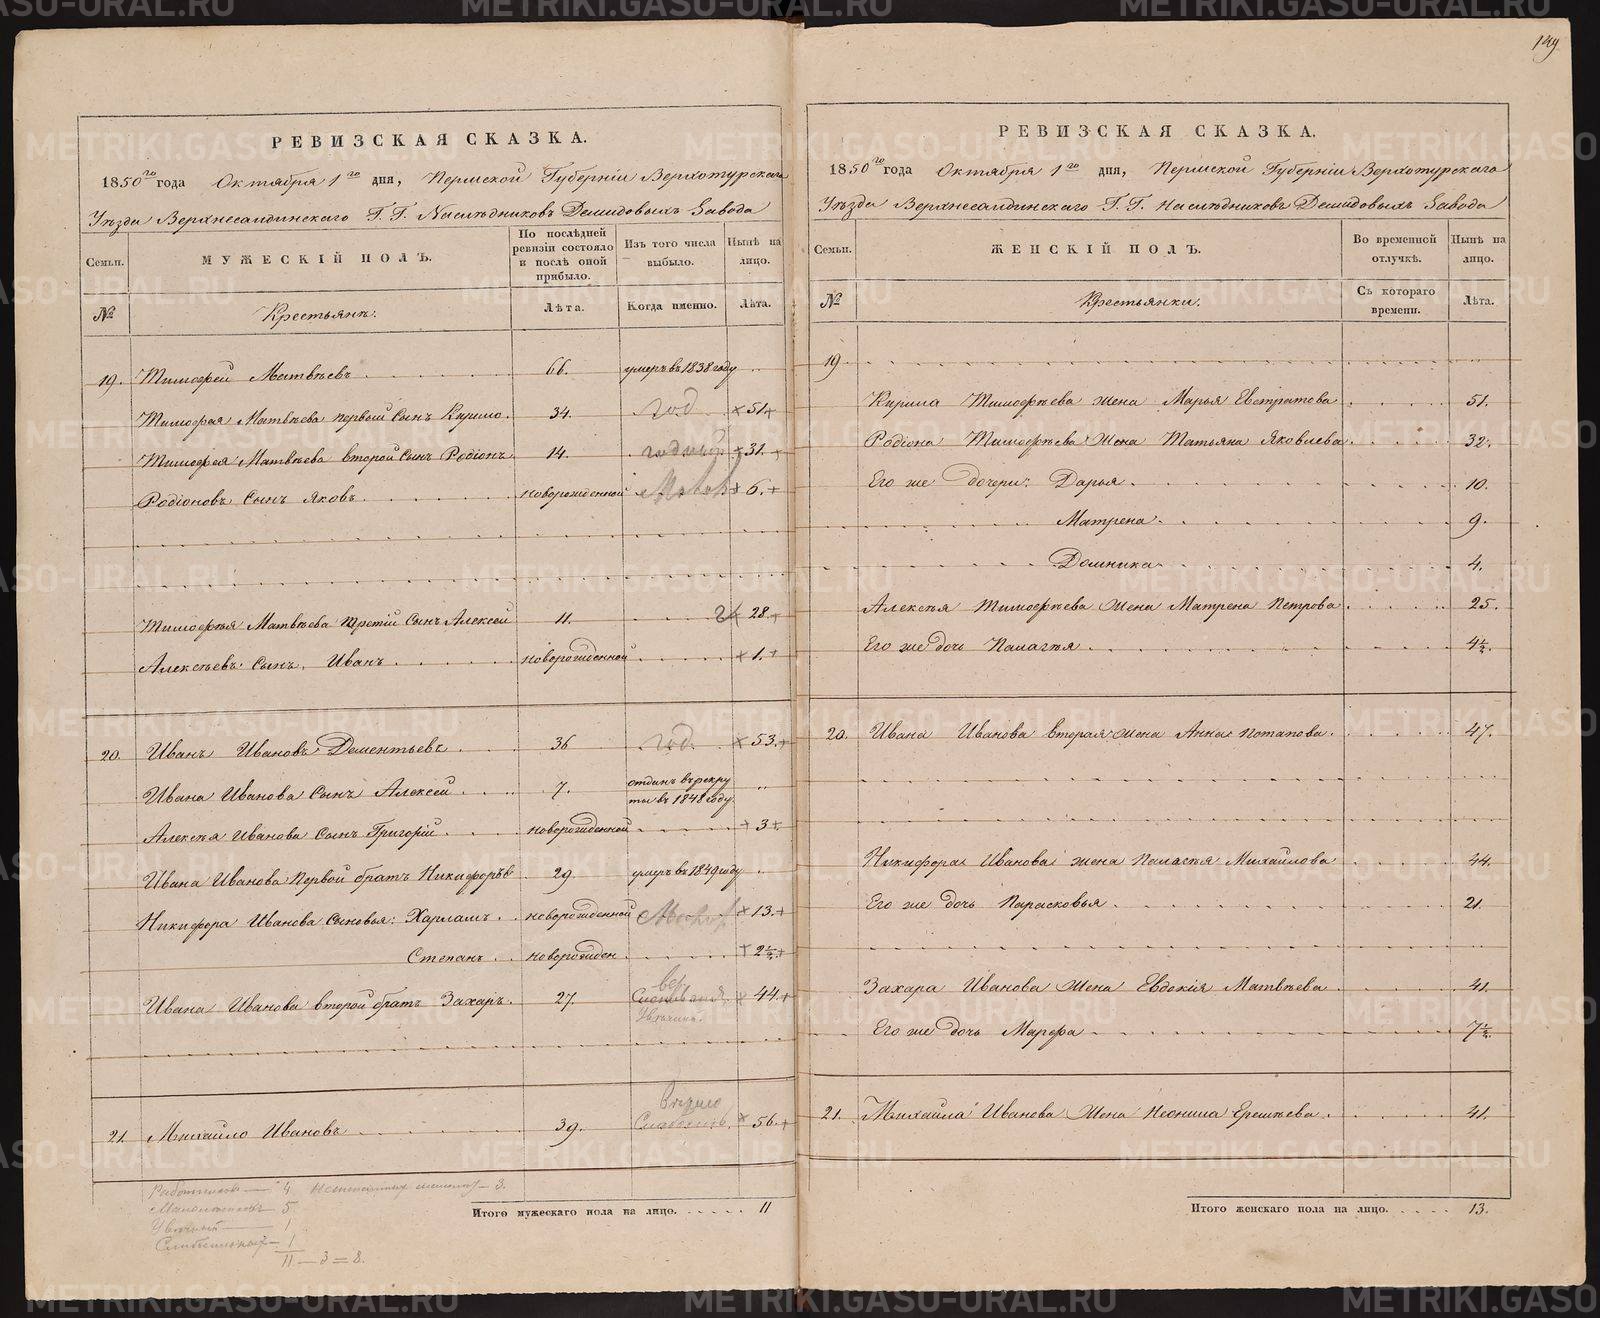 149
РЕВИЗСКАЯ СКАЗКА.
1850го года Октября 1го дня, Пермской Губерніи Верхотурскаго
Уѣзда Верхнесалдинскаго Г. Г. Наслѣдниковъ Демидовыхъ Завода
Семьи.
МУЖЕСКІЙ ПОЛЪ.
По послѣдней ревизіи состояло и послѣ оной прибыло.
Изъ того числа выбыло.
Нынѣ на лицо.
№
Крестьянъ.
Лѣта.
Когда именно.
Лѣта.
19. Тимофей Матвѣевъ 66. умеръ въ 1838 году
Тимофея Матвѣева первой Сынъ Кирило. 34. год × 51 +
Тимофея Матвѣева второй Сынъ Родіонъ 14. + 31. +
Родіоновъ Сынъ Яковъ новорожденной + 6. +
Тимофѣя Матвѣева Третій Сынъ Алексей 11. 28. +
Алексѣевъ Сынъ, Иванъ новорожденной + 1. +
20. Иванъ Ивановъ Дементьевъ 36 год. × 53. +
Ивана Иванова Сынъ Алексей 7. отданъ въ рекру
ты въ 1848 году.
Алексѣя Иванова Сынъ Григорій новорожденной + 3 +
Ивана Иванова Первой братъ Никифоръ 29 умеръ въ 1849 году
Никифора Иванова Сыновья: Харламъ новорожденной + 13. +
Степанъ новорожден. + 2½ +
Ивана Иванова второй братъ Захаръ. 27. × 44. +
21. Михайло Ивановъ 39. × 56. +
Работников — 4
Малолѣтковъ 5
Увѣчный — 1
— 1
11 — 3 = 8.
Итого мужескаго пола на лицо. 11
РЕВИЗСКАЯ СКАЗКА.
1850го года Октября 1го дня, Пермской Губерніи Верхотурскаго
Уѣзда Верхнесалдинскаго Г. Г. Наслѣдниковъ Демидовыхъ Завода
Семьи.
ЖЕНСКІЙ ПОЛЪ.
Во временной отлучкѣ.
Нынѣ на лицо.
№
Крестьянки.
Съ котораго времени.
Лѣта.
19
Кирила Тимофѣева жена Марья Евстратова 51.
Родіона Тимофѣева Жена Татьяна Яковлева 32.
Его же дочери: Дарья 10.
Матрена 9.
Домника 4.
Алексѣя Тимофѣева Жена Матрена Петрова 25.
Его же дочь Палагѣя 4½.
20. Ивана Иванова вторая Жена Анна Потапова. 47.
Никифора Иванова жена Палагѣя Михайлова 44.
Его же дочь Парасковья 21.
Захара Иванова Жена Евдокія Матвѣева 41.
Его же дочь Марфа 7½.
21. Михайла Иванова Жена Неонила Ерешѣева. 41.
Итого женскаго пола на лицо. 13.
METRIKI.GASO-URAL.RU